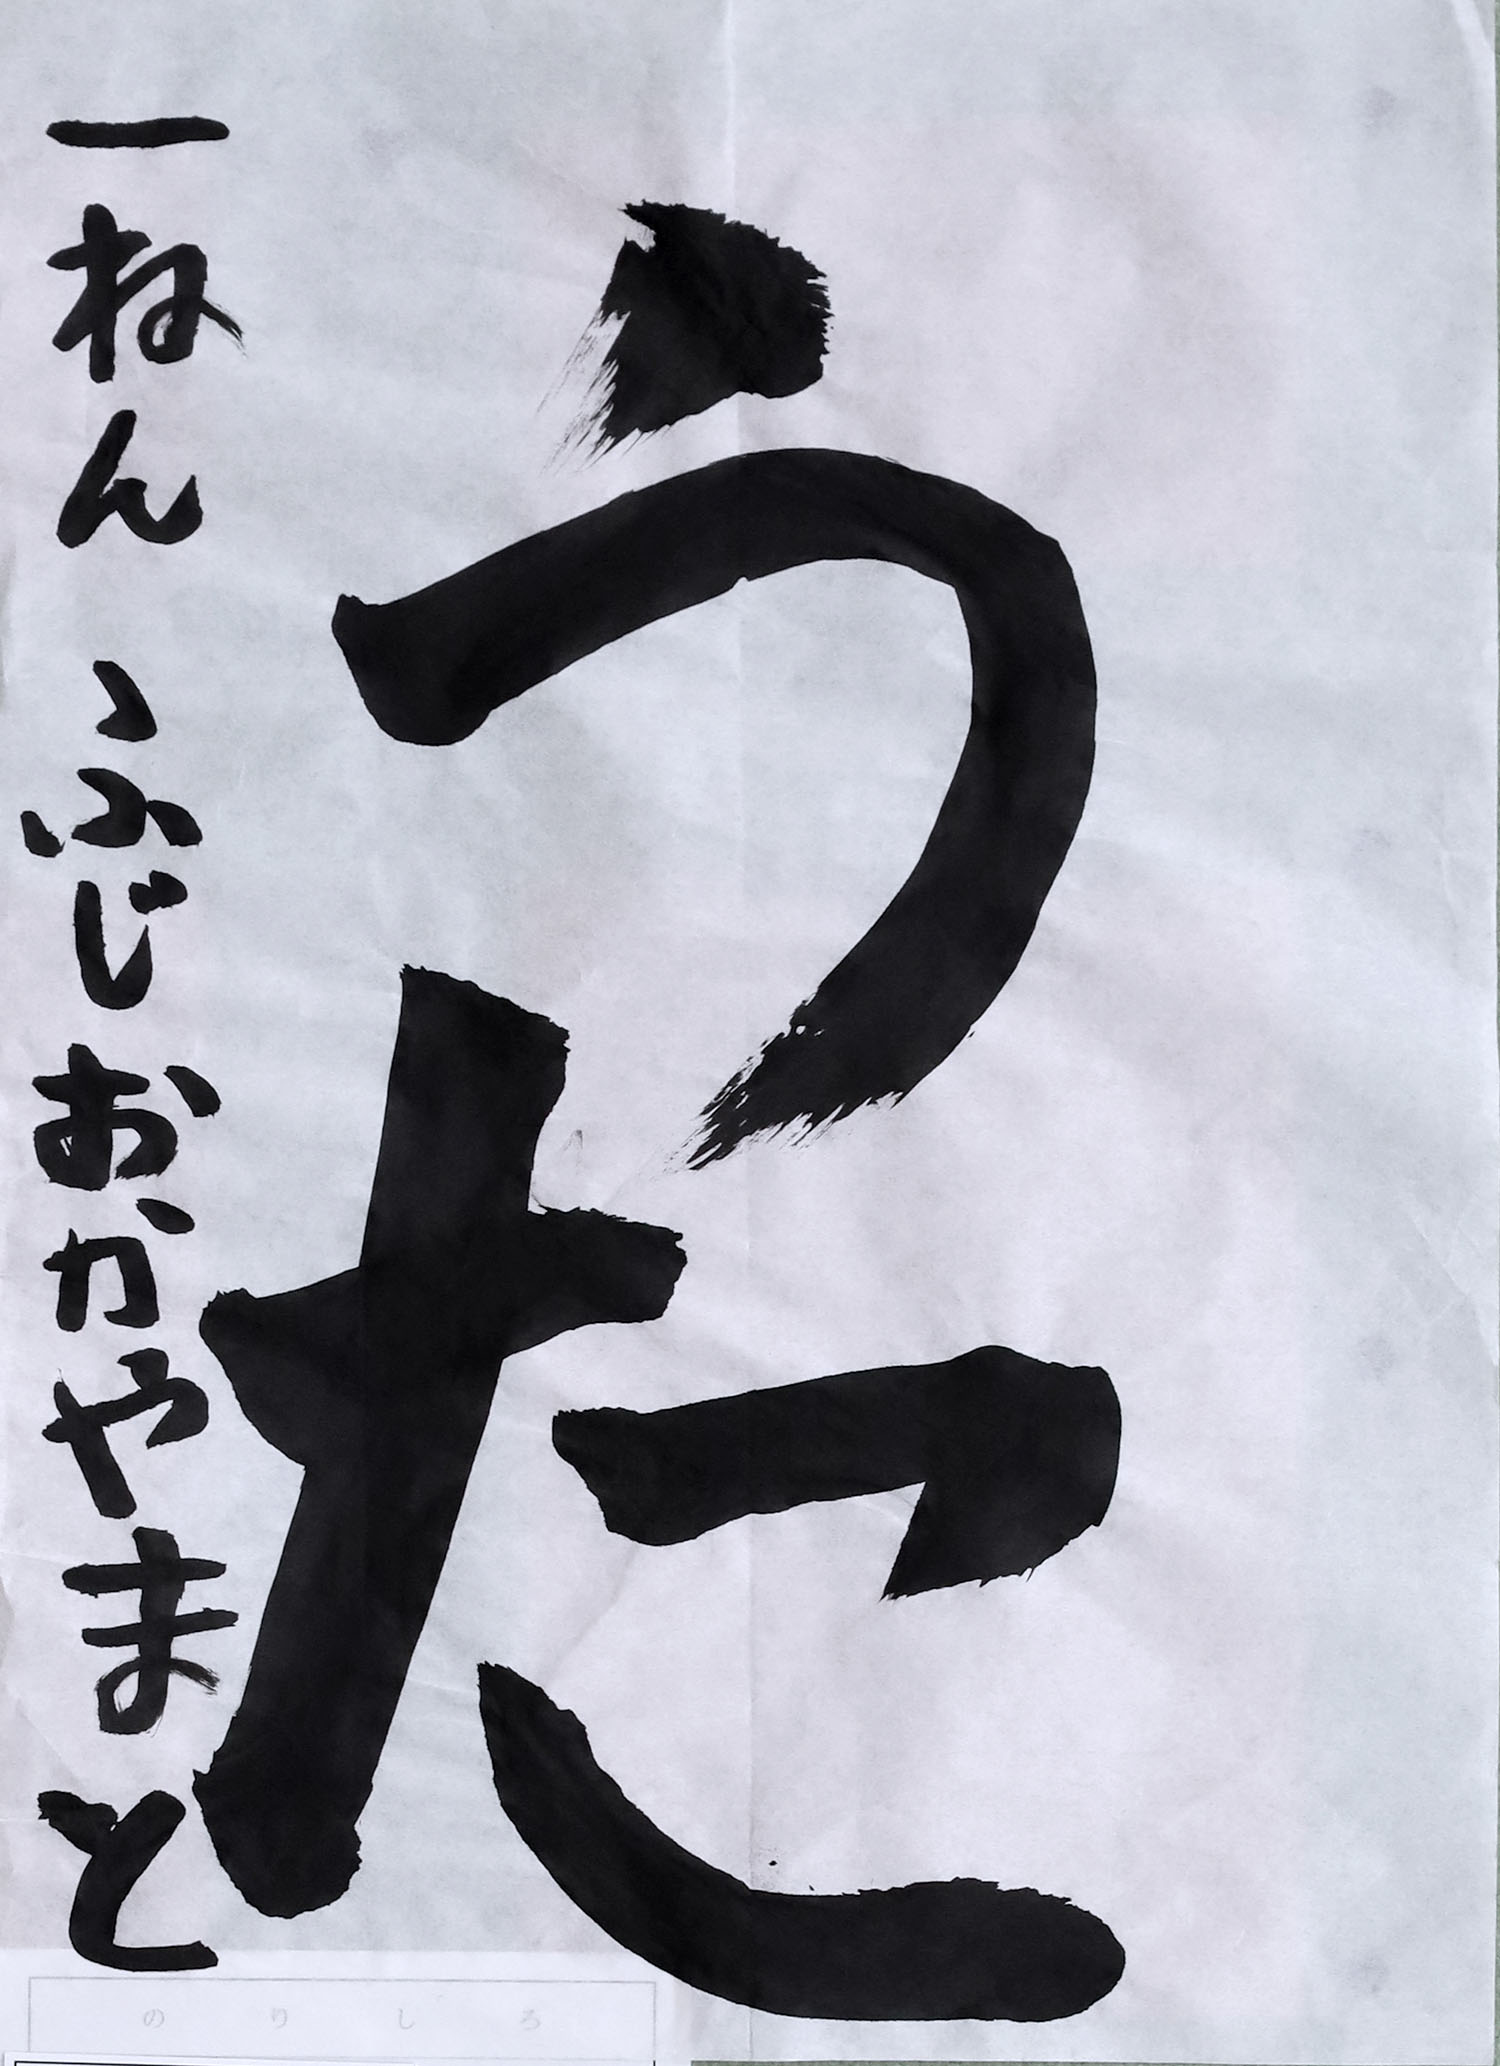 うた
一ねん ふじおかやまと
のりしろ